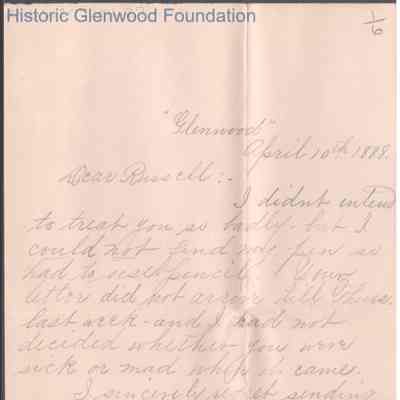 Historic Glenwood Foundation
1/6
"Glenwood"
April 10th 1889.
Dear Russell:-
I didnt intend
to treat you so badly - but I
could not find my pen so
had to use pencil. Your
letter did not arrive till Thurs.
last week - and I had not
decided whether you were
sick or mad when it came.
I sincerely regret sending